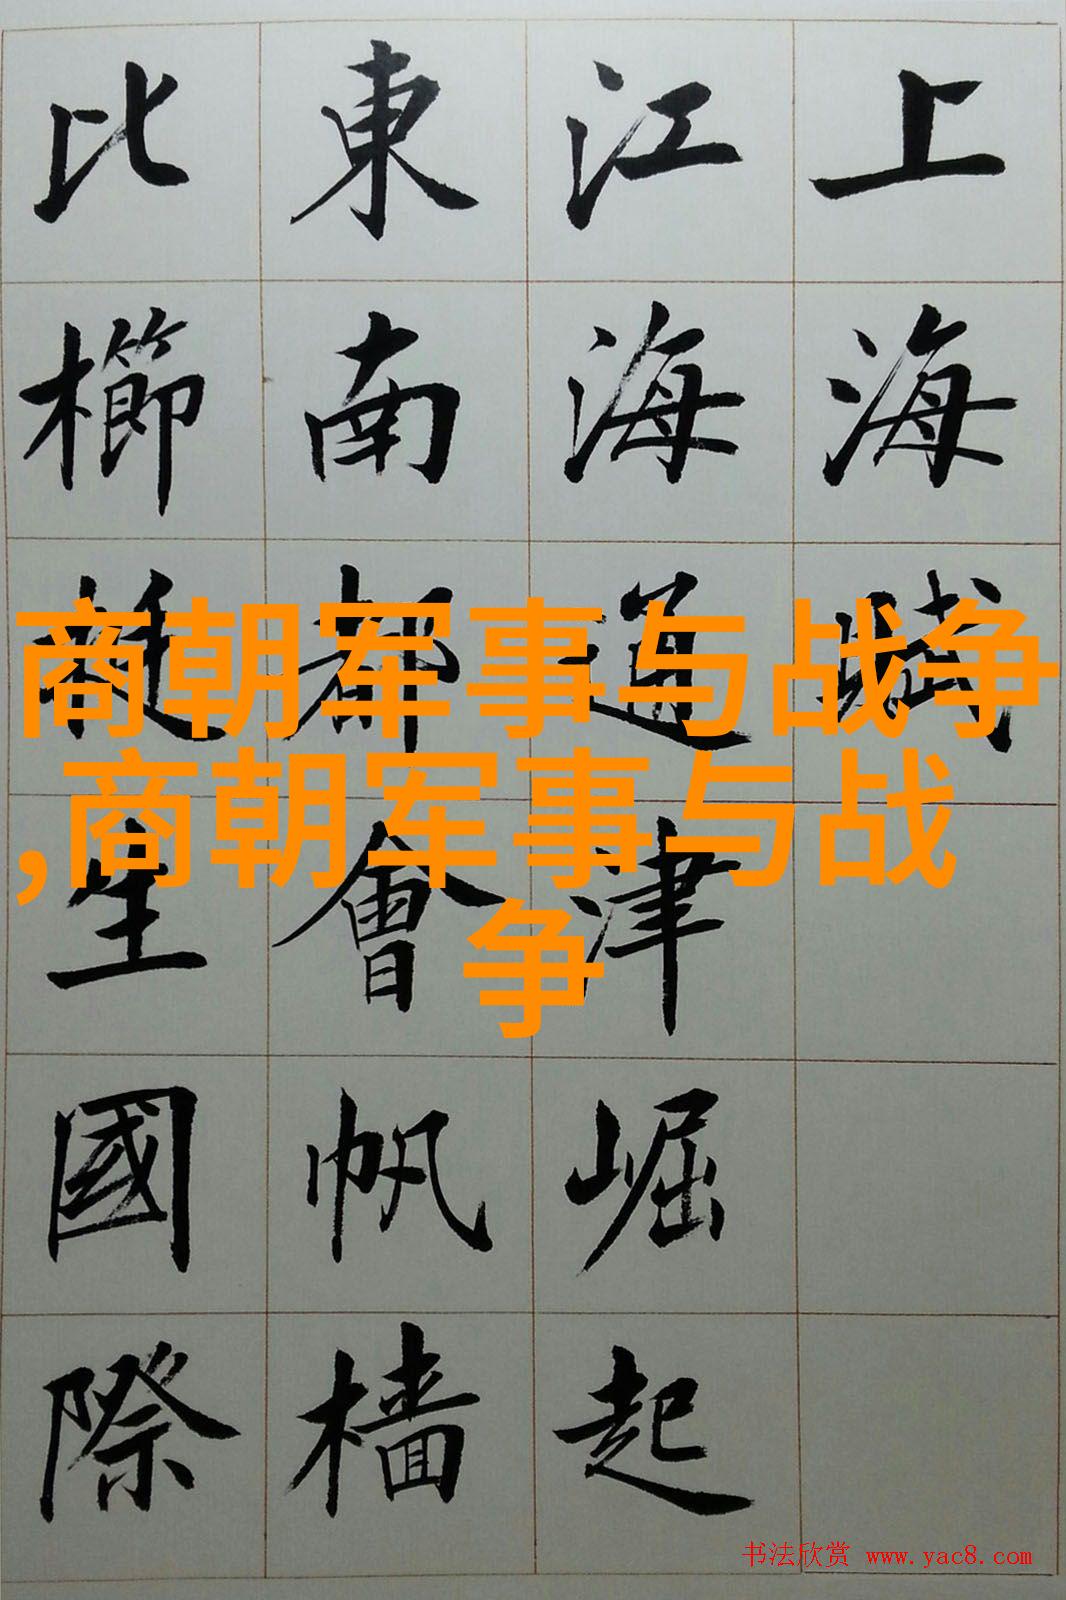 上海賦
江海通津崛起
東南都會帆檣
比櫛生國際
商朝军事与战争
,商朝军事与战
争
书法欣赏 www.yac8.com